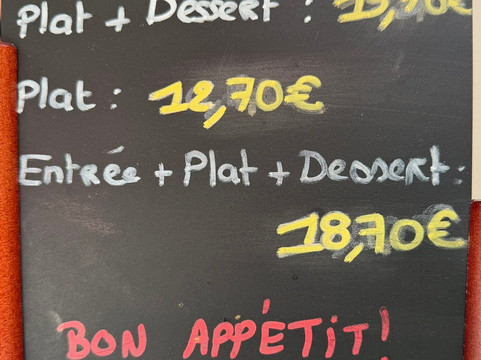 Plat + Dessert : 15,70€
Plat : 12,70€
Entrée + Plat + Dessert :
18,70€
BON APPÉTIT !